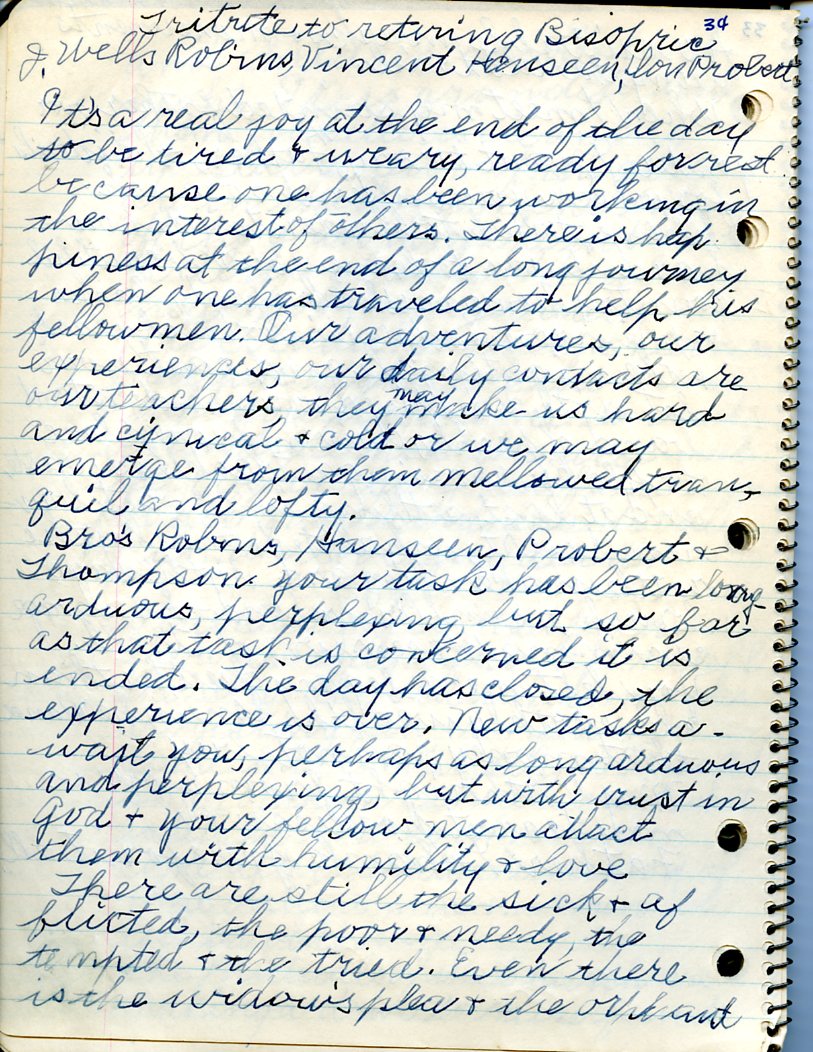 34
Tritrite to retiring Bisopric
J. Wells Robins, Vincent Hanseen, Von Probert
It's a real joy at the end of the day
to be tired & weary, ready for rest
because one has been working in
the interest of others. There is hap
piness at the end of a long journey
when one has traveled to help his
fellowmen. Our adventures, our
experiences, our daily contacts are
our teachers, they may make us hard
and cynical & cold or we may
emerge from them mellowed tran-
quil and lofty.
Bro's Robins, Hanseen, Probert &
Thompson your task has been long
arduous, perplexing but so far
as that task is concerned it is
ended. The day has closed, the
experience is over. New tasks a-
wait you, perhaps as long arduous
and perplexing, but with trust in
God & your fellow men attact
them with humility & love
There are still the sick & af
flicted, the poor & needy, the
tempted & the tried. Even there
is the widow's plea & the orphant